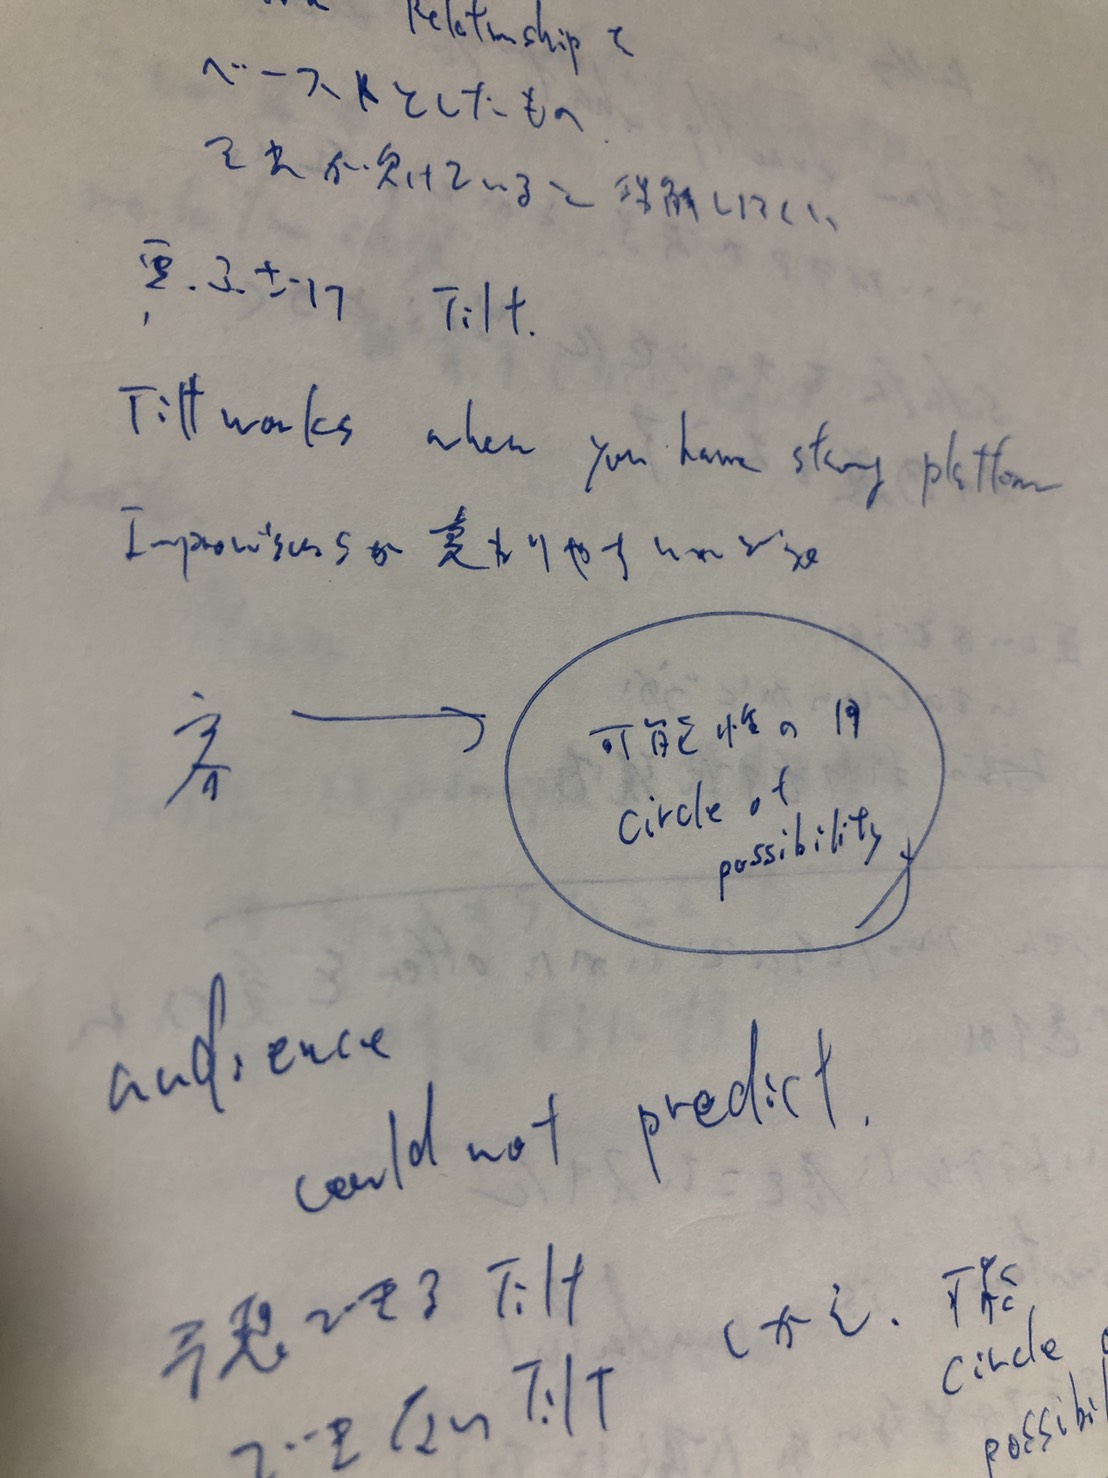 Relationship を
ベースとしたもの
が欠けていると理解しにくい
Tilt.
Tilt works when you have strong platform
Improvisersが変わりやすい
客 →
可能性の円
circle of
possibility
audience
could not predict.
予想できる Tilt
できない Tilt
しかも、可能
circle
possibil